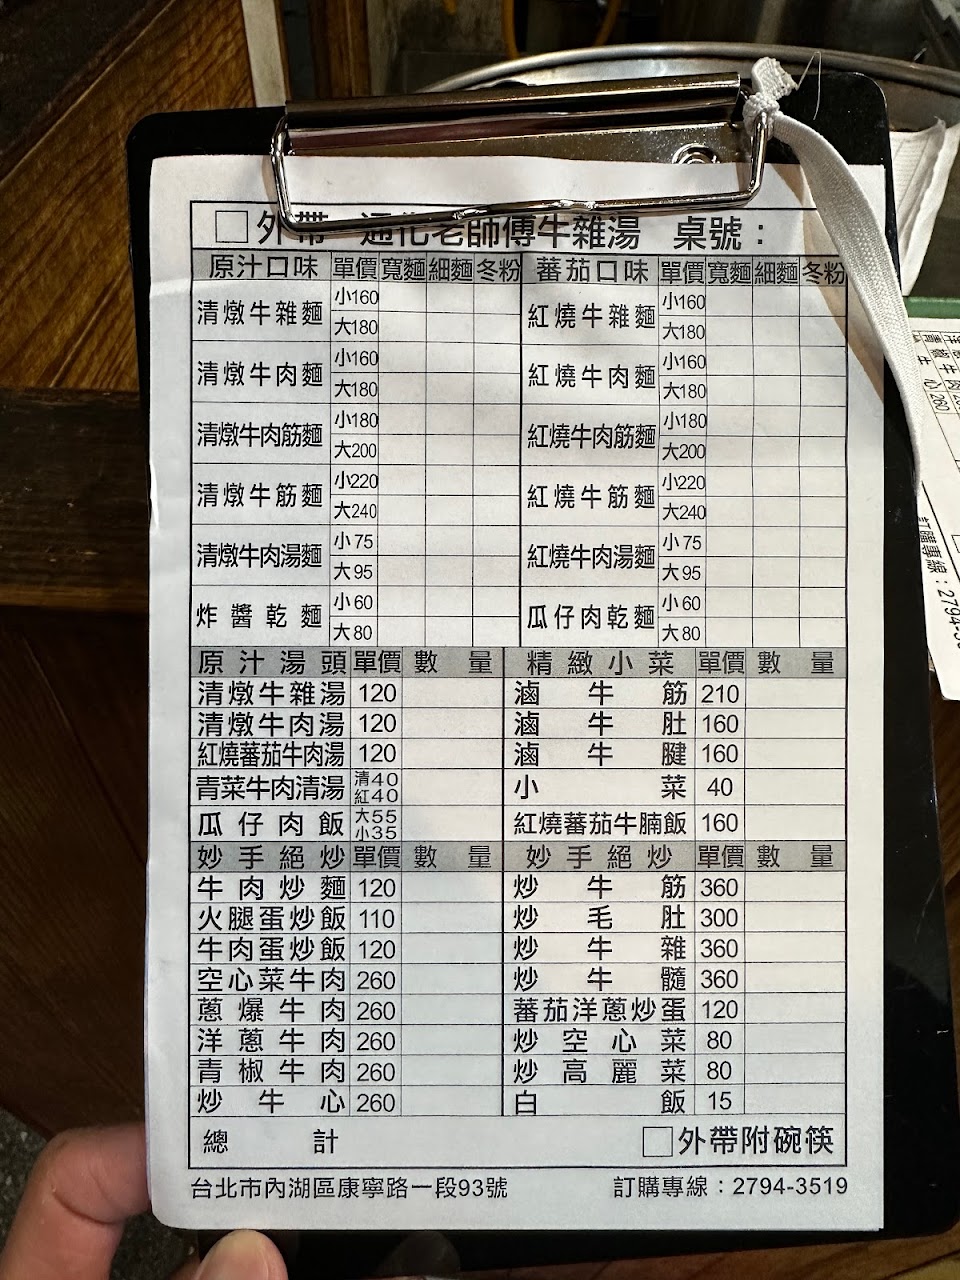 □外帶 通化老師傅牛雜湯 桌號：
原汁口味 單價 寬麵 細麵 冬粉 蕃茄口味 單價 寬麵 細麵 冬粉
清燉牛雜麵 小160 大180 紅燒牛雜麵 小160 大180
清燉牛肉麵 小160 大180 紅燒牛肉麵 小160 大180
清燉牛肉筋麵 小180 大200 紅燒牛肉筋麵 小180 大200
清燉牛筋麵 小220 大240 紅燒牛筋麵 小220 大240
清燉牛肉湯麵 小75 大95 紅燒牛肉湯麵 小75 大95
炸醬乾麵 小60 大80 瓜仔肉乾麵 小60 大80
原汁湯頭 單價 數量 精緻小菜 單價 數量
清燉牛雜湯 120 滷牛筋 210
清燉牛肉湯 120 滷牛肚 160
紅燒蕃茄牛肉湯 120 滷牛腱 160
青菜牛肉清湯 清40 紅40 小菜 40
瓜仔肉飯 大55 小35 紅燒蕃茄牛腩飯 160
妙手絕炒 單價 數量 妙手絕炒 單價 數量
牛肉炒麵 120 炒牛筋 360
火腿蛋炒飯 110 炒毛肚 300
牛肉蛋炒飯 120 炒牛雜 360
空心菜牛肉 260 炒牛髓 360
蔥爆牛肉 260 蕃茄洋蔥炒蛋 120
洋蔥牛肉 260 炒空心菜 80
青椒牛肉 260 炒高麗菜 80
炒牛心 260 白飯 15
總計 □外帶附碗筷
台北市內湖區康寧路一段93號 訂購專線：2794-3519